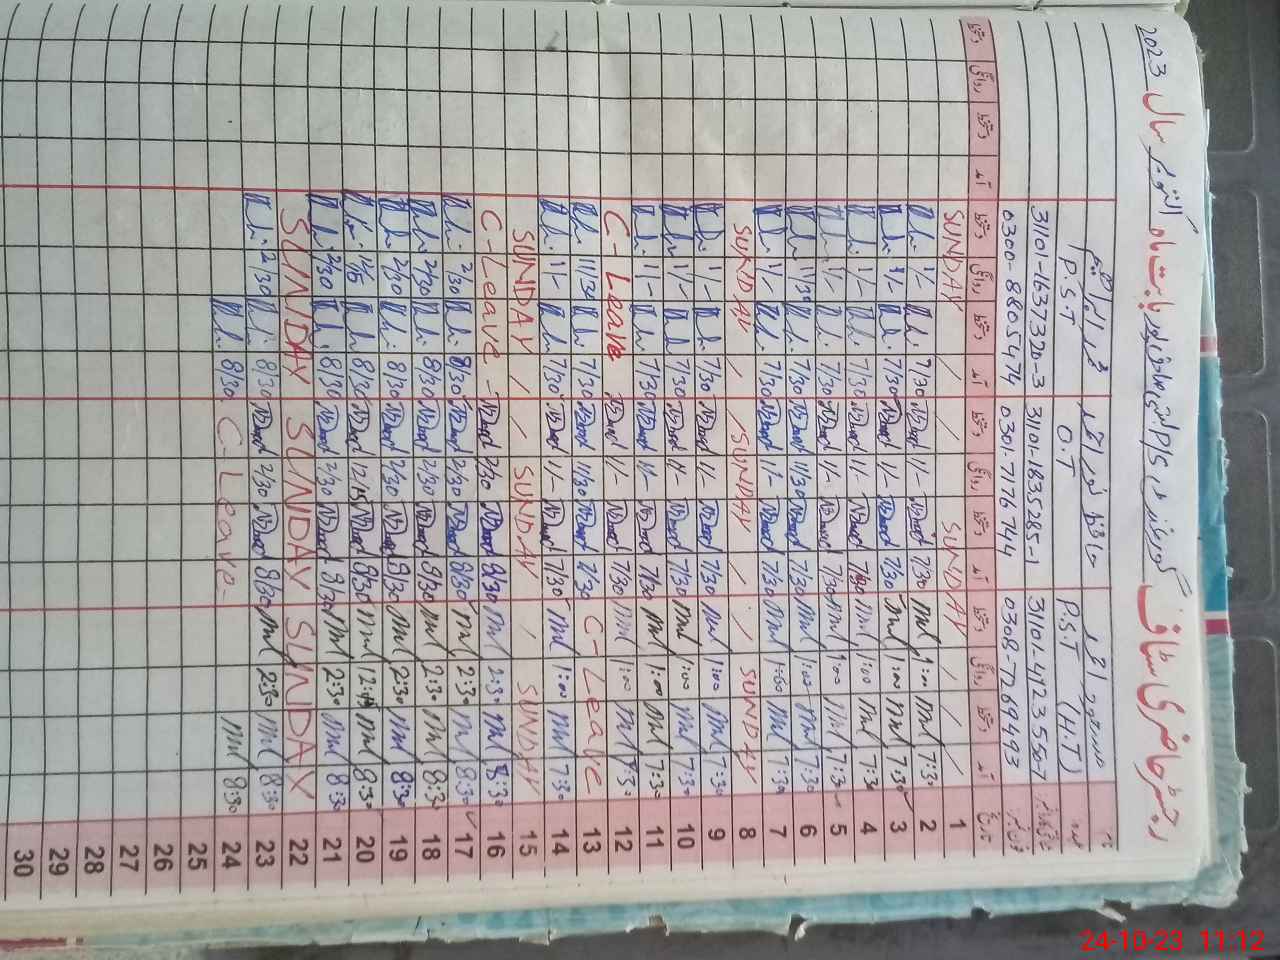 رجسٹر حاضری سٹاف گورنمنٹ بابت ماہ اکتوبر سال 2023
مسعود احمد حافظ نور احمد محمد ابراہیم
P.S.T (H.T) O.T P.S.T
31101-4723550-7 31101-1835285-1 31101-1637320-3
0308-7269493 0301-7176744 0300-8805474
تاریخ آمد دستخط روانگی دستخط آمد دستخط روانگی دستخط آمد دستخط روانگی دستخط آمد دستخط روانگی دستخط
1 SUNDAY SUNDAY
2 7:30 1:00 7/30 1/- 7/30 1/-
3 7:30 1:00 7/30 1/- 7/30 1/-
4 7:30 1:00 7/30 1/- 7/30 1/-
5 7:30 1:00 7/30 1/- 7/30 1/-
6 7:30 1:00 7/30 11/30 7/30 11/30
7 7:30 1:00 7/30 1/- 7/30 1/-
8 SUNDAY SUNDAY SUNDAY
9 7:30 1:00 7/30 1/- 7/30 1/-
10 7:30 1:00 7/30 1/- 7/30 1/-
11 7:30 1:00 7/30 1/- 7/30 1/-
12 7:30 1:00 7/30 1/- C-Leave
13 C-Leave 7/30 11/30 7/30 11/30
14 7:30 1:00 7/30 1/- 7/30 1/-
15 SUNDAY SUNDAY SUNDAY
16 8:30 2:30 8/30 2/30 C-Leave-
17 8:30 2:30 8/30 2/30 8/30 2/30
18 8:30 2:30 8/30 2/30 8/30 2/30
19 8:30 2:30 8/30 2/30 8/30 2/30
20 8:30 12:45 8/30 12/15 8/30 11/15
21 8:30 2:30 8/30 2/30 8/30 2/30
22 SUNDAY SUNDAY SUNDAY
23 8:30 2:30 8/30 2/30 8/30 2/30
24 8:30 C-Leave- 8/30
25
26
27
28
29
30
24-10-23 11:12